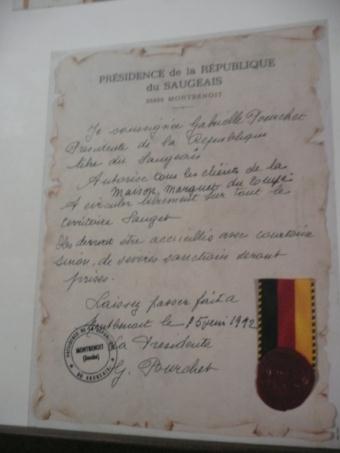 PRÉSIDENCE de la RÉPUBLIQUE
du SAUGEAIS
25650 MONTBENOIT
Je soussignée Gabrielle Pourchet
Présidente de la République
libre du Saugeais
Autorise tous les clients de la
Maison
A circuler librement sur tout le
territoire Sauget
Ils devront être accueillis avec courtoisie
sinon, de sévères sanctions seront
prises.
Laissez passer fait a
Montbenoit le 1992
La Présidente
G. Pourchet
PRESIDENCE DE LA REPUBLIQUE
MONTBENOIT
(Doubs)
DU SAUGEAIS